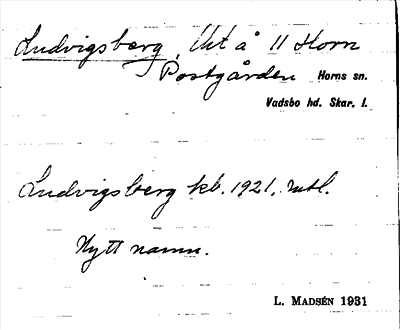 Ludvigsberg, Vit å 11 Horn
Postgården Horns sn.
Vadsbo hd. Skar. l.
Ludvigsberg kb. 1921. mtl.
Nytt namn.
L. MADSÉN 1931